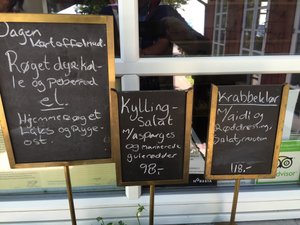 Dagen
Kartoffelmad.
Røget dyrekøl-
le og peberrod
el.
Hjemmerøget
Laks og Ryge-
ost.
Kylling-
Salat
M/asparges
og Marinerede
gulerødder
98,-
Krabbeklør
M/aioli og
Røddressing,
Salat/croutoner
118,-